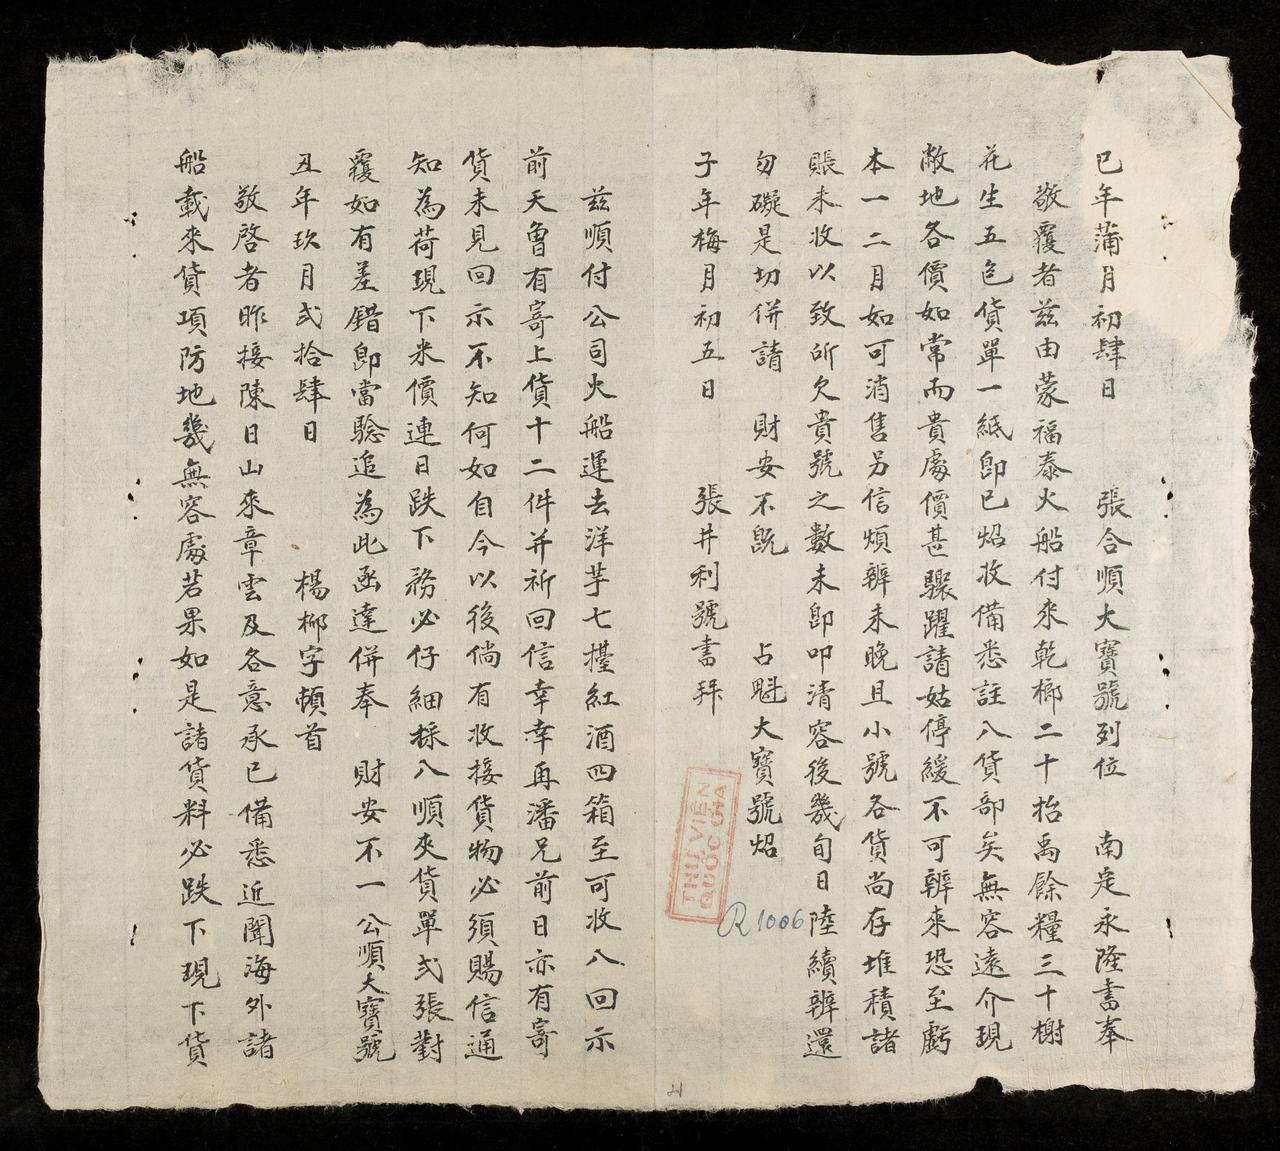 巳年蒲月初肆日　張合順大寶號列位　南定永隆書奉
敬覆者茲由蒙福泰火船付來乾榔二十抬禹餘糧三十樹
花生五色貨單一紙即已炤收備悉註八貨部矣無容遠介現
敝地各價如常而貴處價甚驟躍請姑停緩不可辦來恐至虧
本一二月如可消售另信煩辦未晚且小號各貨尚存堆積諸
賬未收以致所欠貴號之數未即叩清容後幾旬日陸續辦還
勿礙是切併請　財安不既　占魁大寶號炤
子年梅月初五日　張井利號書拜
茲順付公司火船運去洋芋七擡紅酒四箱至可收八回示
前天曾有寄上貨十二件并祈回信幸幸再潘兄前日亦有寄
貨未見回示不知何如自今以後倘有收接貨物必須賜信通
知為荷現下米價連日跌下務必仔細採八順夾貨單弍張對
覆如有差錯即當驗追為此函達併奉　財安不一公順大寶號
丑年玖月弍拾肆日　楊柳字頓首
敬啓者昨接陳日山來章雲及各意承已備悉近聞海外諸
船載來貨項防地幾無容處若果如是諸貨料必跌下現下貨
THƯ VIỆN
QUỐC GIA
R 1006
21